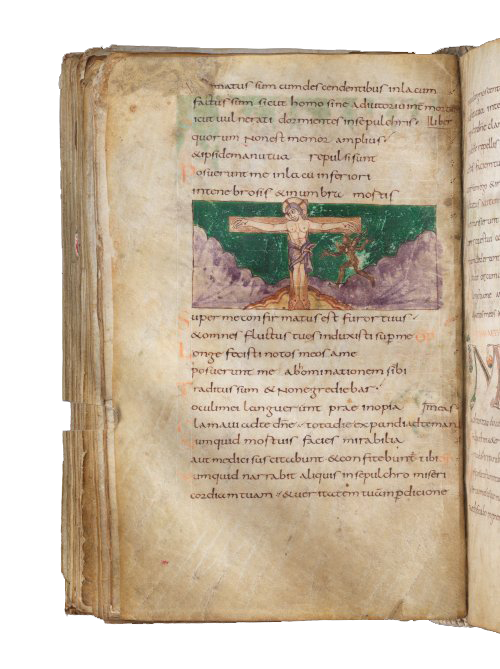 matus sum cumdescendentibus inlacum
factus sum sicut homo sine adiutorio int mortu
icut vulnerati dormientes insepulchris · liber
quorum nonest memor amplius·
&ipsidemanutua repulsisunt
Posuerunt me inlacu inferiori
intenebrosis &inumbra mortis
Super meconfirmatus est furor tuus·
&omnes fluctus tuos induxisti supme
Longe fecisti notos meos ame
posuerunt me abominationem sibi
Traditus sum & nonegrediebar·
oculimei languerunt prae inopia
meas
lamaui adte dne· totadie expandiadteman
Numquid mortuis facies mirabilia
aut medici suscitabunt &confitebunt tibi
Numquid narrabit aliquis insepulchro miseri
cordiam tuam· &ueritatem tuam pditione